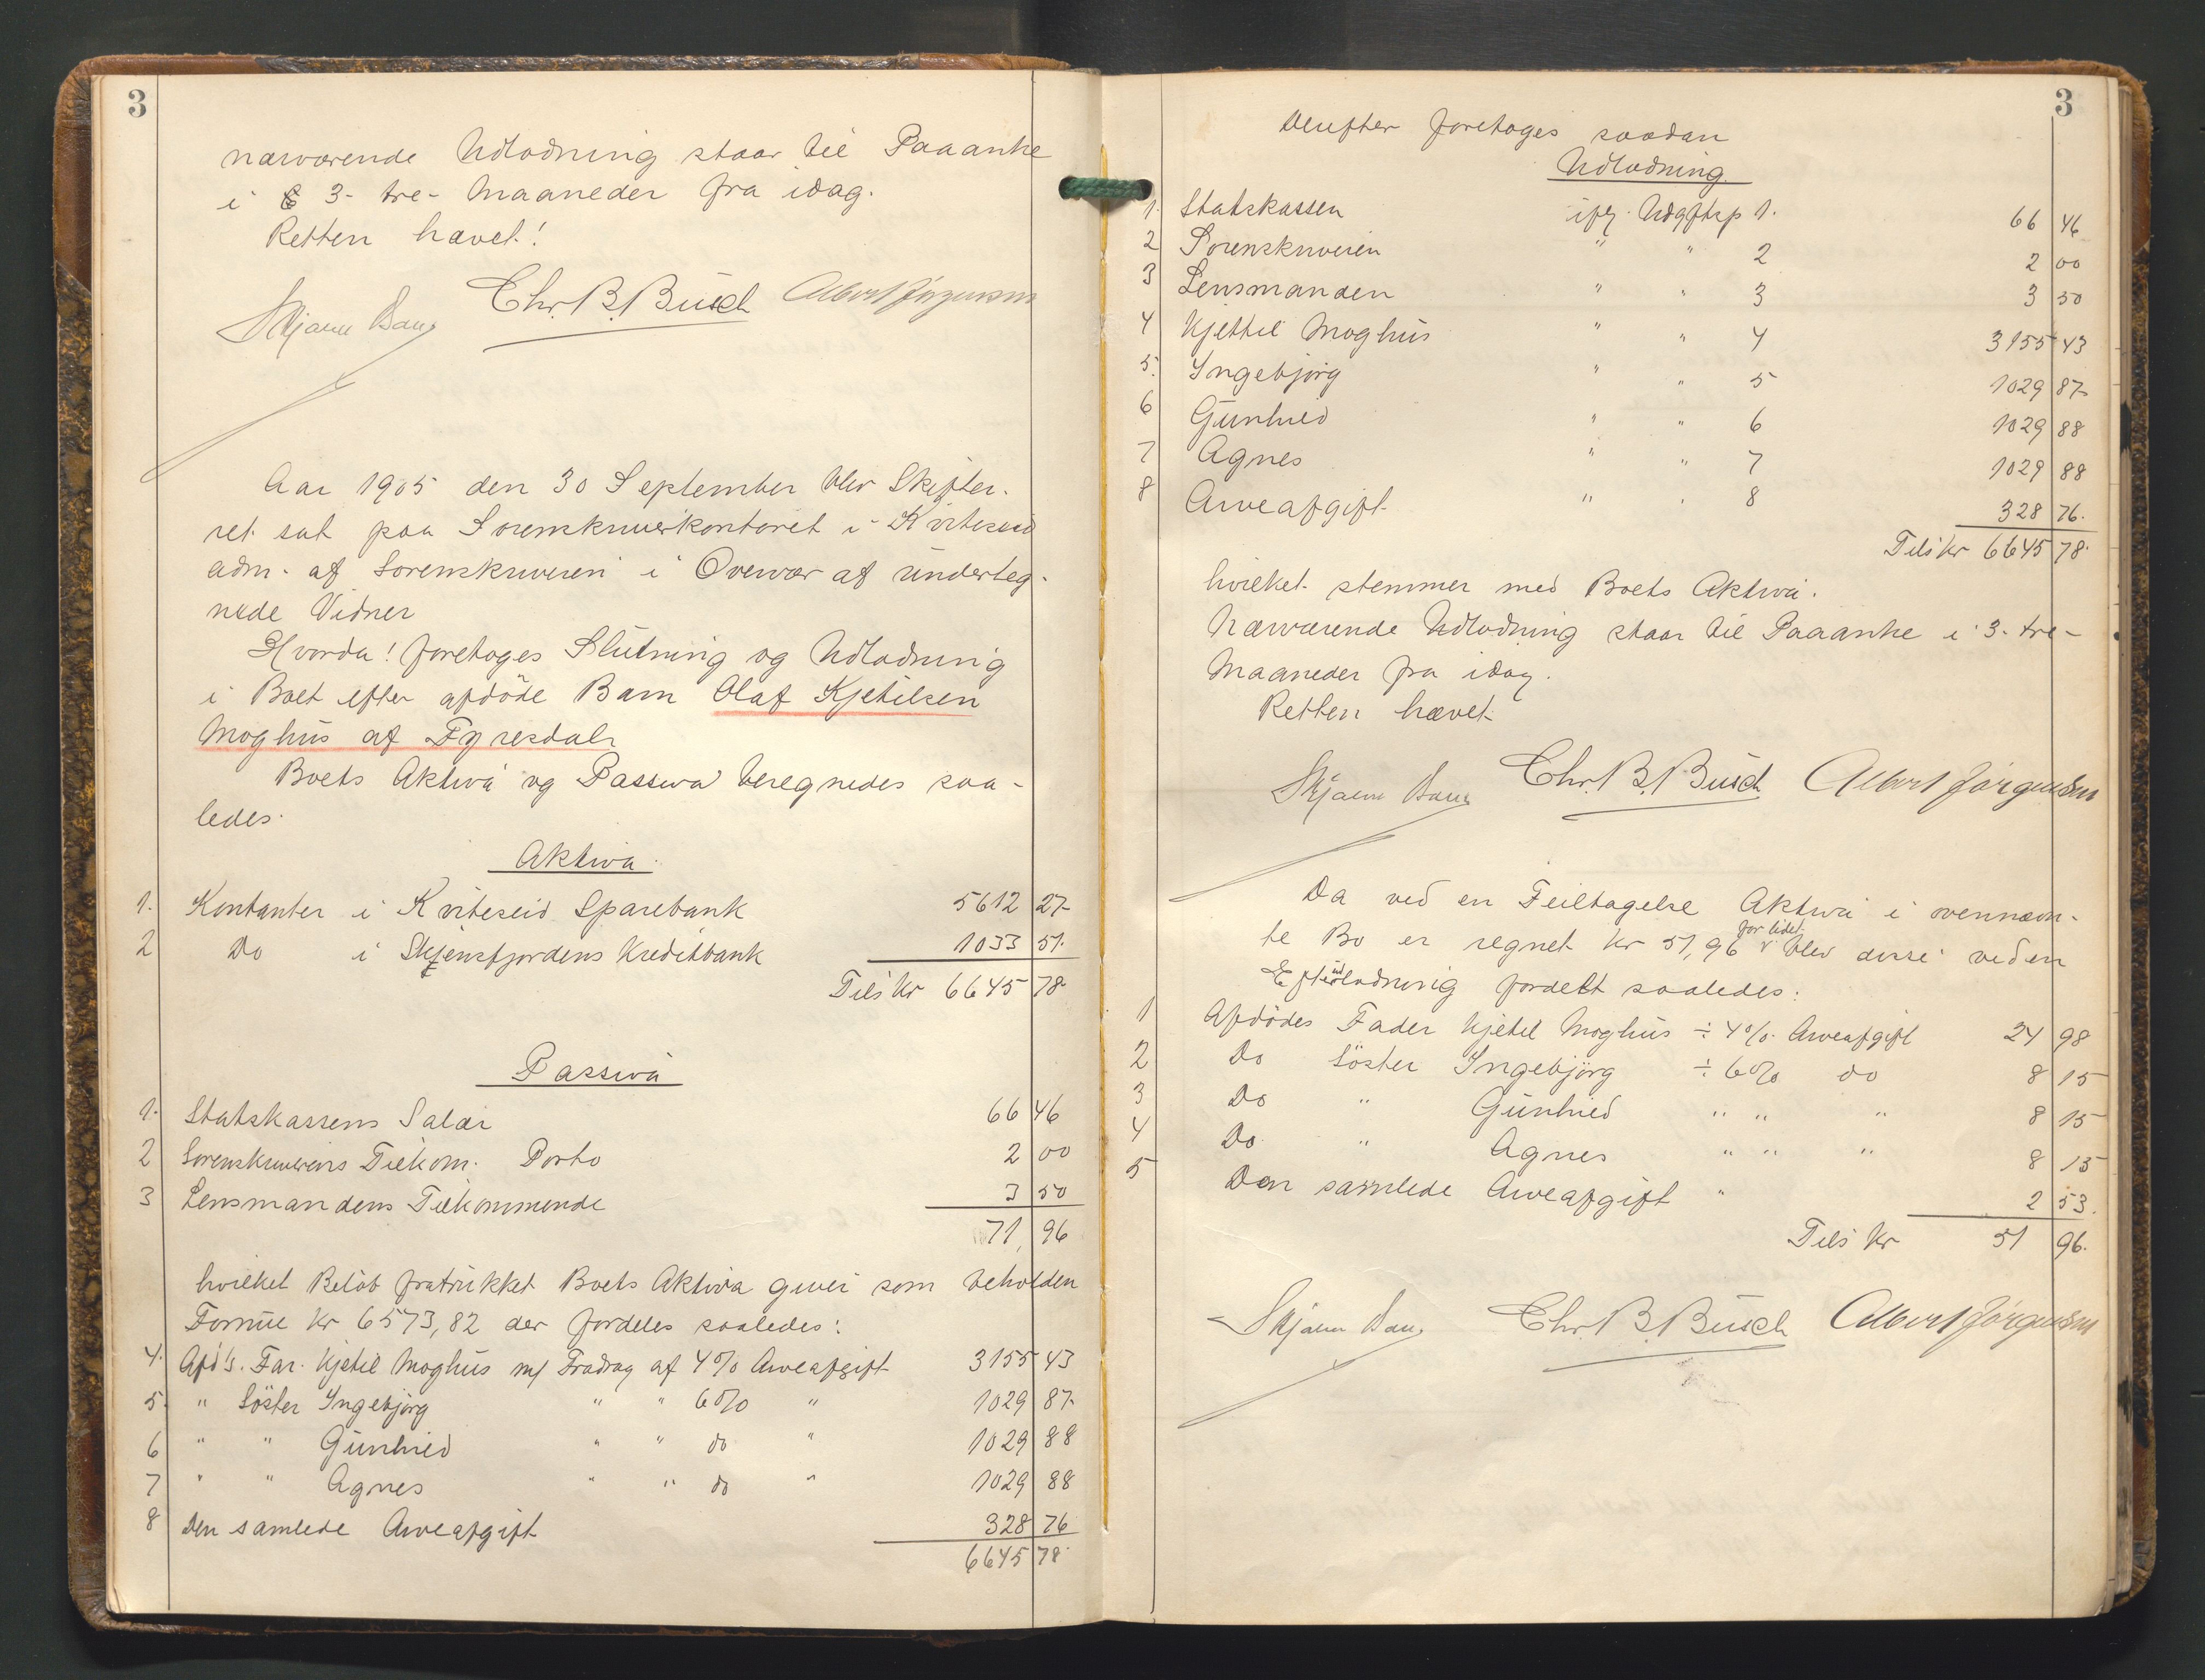 3
nærværende Udlodning staar til Paaanke
i 3- tre- Maaneder fra idag.
Retten hævet!
Chr. B. Busch Albert Jørgensen
Aar 1905 den 30 September blev Skifter-
ret sat paa Sorenskriverkontoret i Kviteseid
adm. af Sorenskriveren i Overvær af underteg-
nede Vidner
Hvorda! foretoges Slutning og Udlodning
i Boet efter afdöde Barn Olaf Kjetilsen
Moghus af Fyresdal.
Boets Aktiva og Passiva beregnedes saa-
ledes.
Aktiva
1. Kontanter i Kviteseid Sparebank 5612 27
2 Do i Skiensfjordens Kreditbank 1033 51.
Tils Kr 6645 78
Passiva
1. Statskassens Salær 66 46
2 Sorenskriverens Tilkom. Porto 2 00
3 Lensmandens Tilkommende 3 50
71, 96
hvilket Belöb fratrukket Boets Aktiva giver som beholden
Formue Kr 6573,82 der fordeles saaledes:
4. Afd's. Far. Kjetil Moghus m/ Fradrag af 4% Arveafgift 3155 43
5. " Söster Ingebjörg " " 6% " 1029 87
6 " " Gunhild " " do " 1029 88
7 " " Agnes " " do " 1029 88
8 Den samlede Arveafgift 328 76
6645 78.
3
Derefter foretoges saadan
Udlodning.
1. Statskassen ifg. Udgiftsp 1. 66 46
2 Sorenskriveren " " 2 2 00
3 Lensmanden " " 3 3 50
4 Kjettil Moghus " " 4 3155 43
5. Ingebjörg " " 5 1029 87
6 Gunhild " " 6 1029 88
7 Agnes " " 7 1029 88
8 Arveafgift " " 8 328 76.
Tils kr 6645 78.
hvilket stemmer med Boets Aktiva.
Nærværende Udlodning staar til Paaanke i 3- tre-
Maaneder fra idag.
Retten hævet
Chr. B. Busch Albert Jørgensen
Da ved en Feiltagelse Aktiva i ovennævn-
te Bo er regnet Kr 51,96 for lidet blev disse ved en
Efterudlodning fordelt saaledes:
1 Afdödes Fader Kjetil Moghus ÷ 4%. Arveafgift 24 98
2 Do Söster Ingebjörg ÷ 6% do 8 15
3 Do " Gunhild " " " 8 15
4 Do. " Agnes " " " 8 15
5 Den samlede Arveafgift " 2 53.
Tils Kr 51 96.
Chr. B. Busch Albert Jørgensen